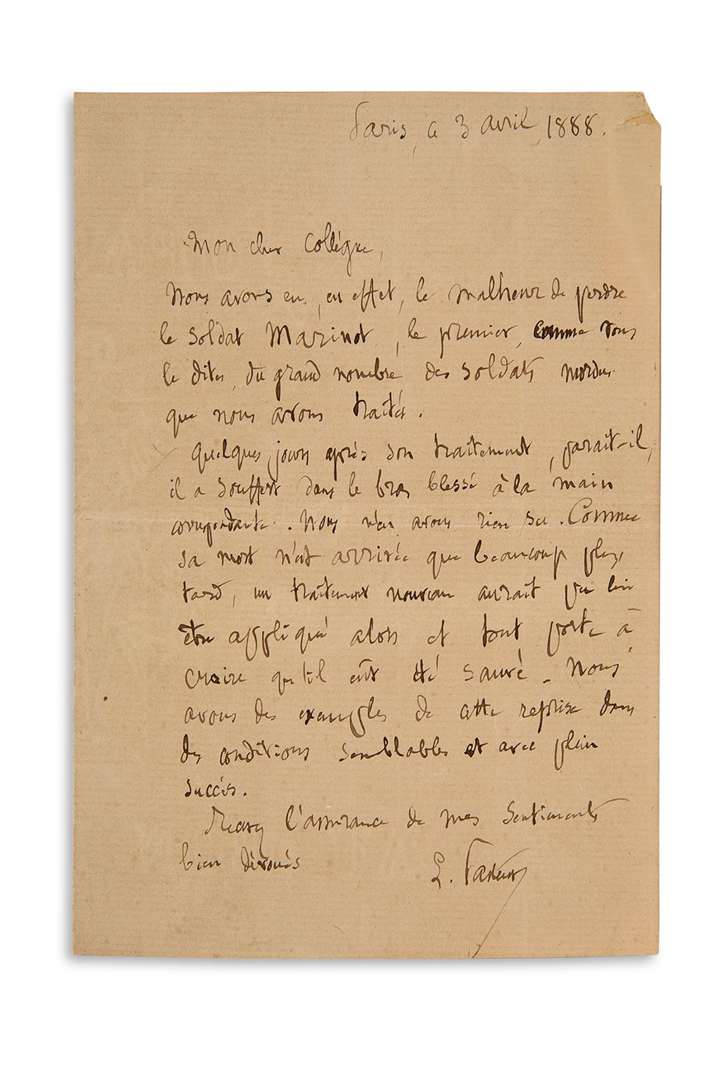 Paris, ce 3 avril 1888.
Mon cher Collègue,
Nous avons eu, en effet, le malheur de perdre
le soldat Marinot, le premier, comme vous
le dites, du grand nombre des soldats mordus
que nous avons traités.
Quelques jours après son traitement, paraît-il,
il a souffert dans le bras blessé à la main
correspondante. Nous n'en avons rien su. Comme
sa mort n'est arrivée que beaucoup plus
tard, un traitement nouveau aurait pu lui
être appliqué alors et tout porte à
croire qu'il eût été sauvé. Nous
avons des exemples de cette reprise dans
des conditions semblables et avec plein
succès.
Recevez l'assurance de mes sentiments
bien dévoués
L. Pasteur